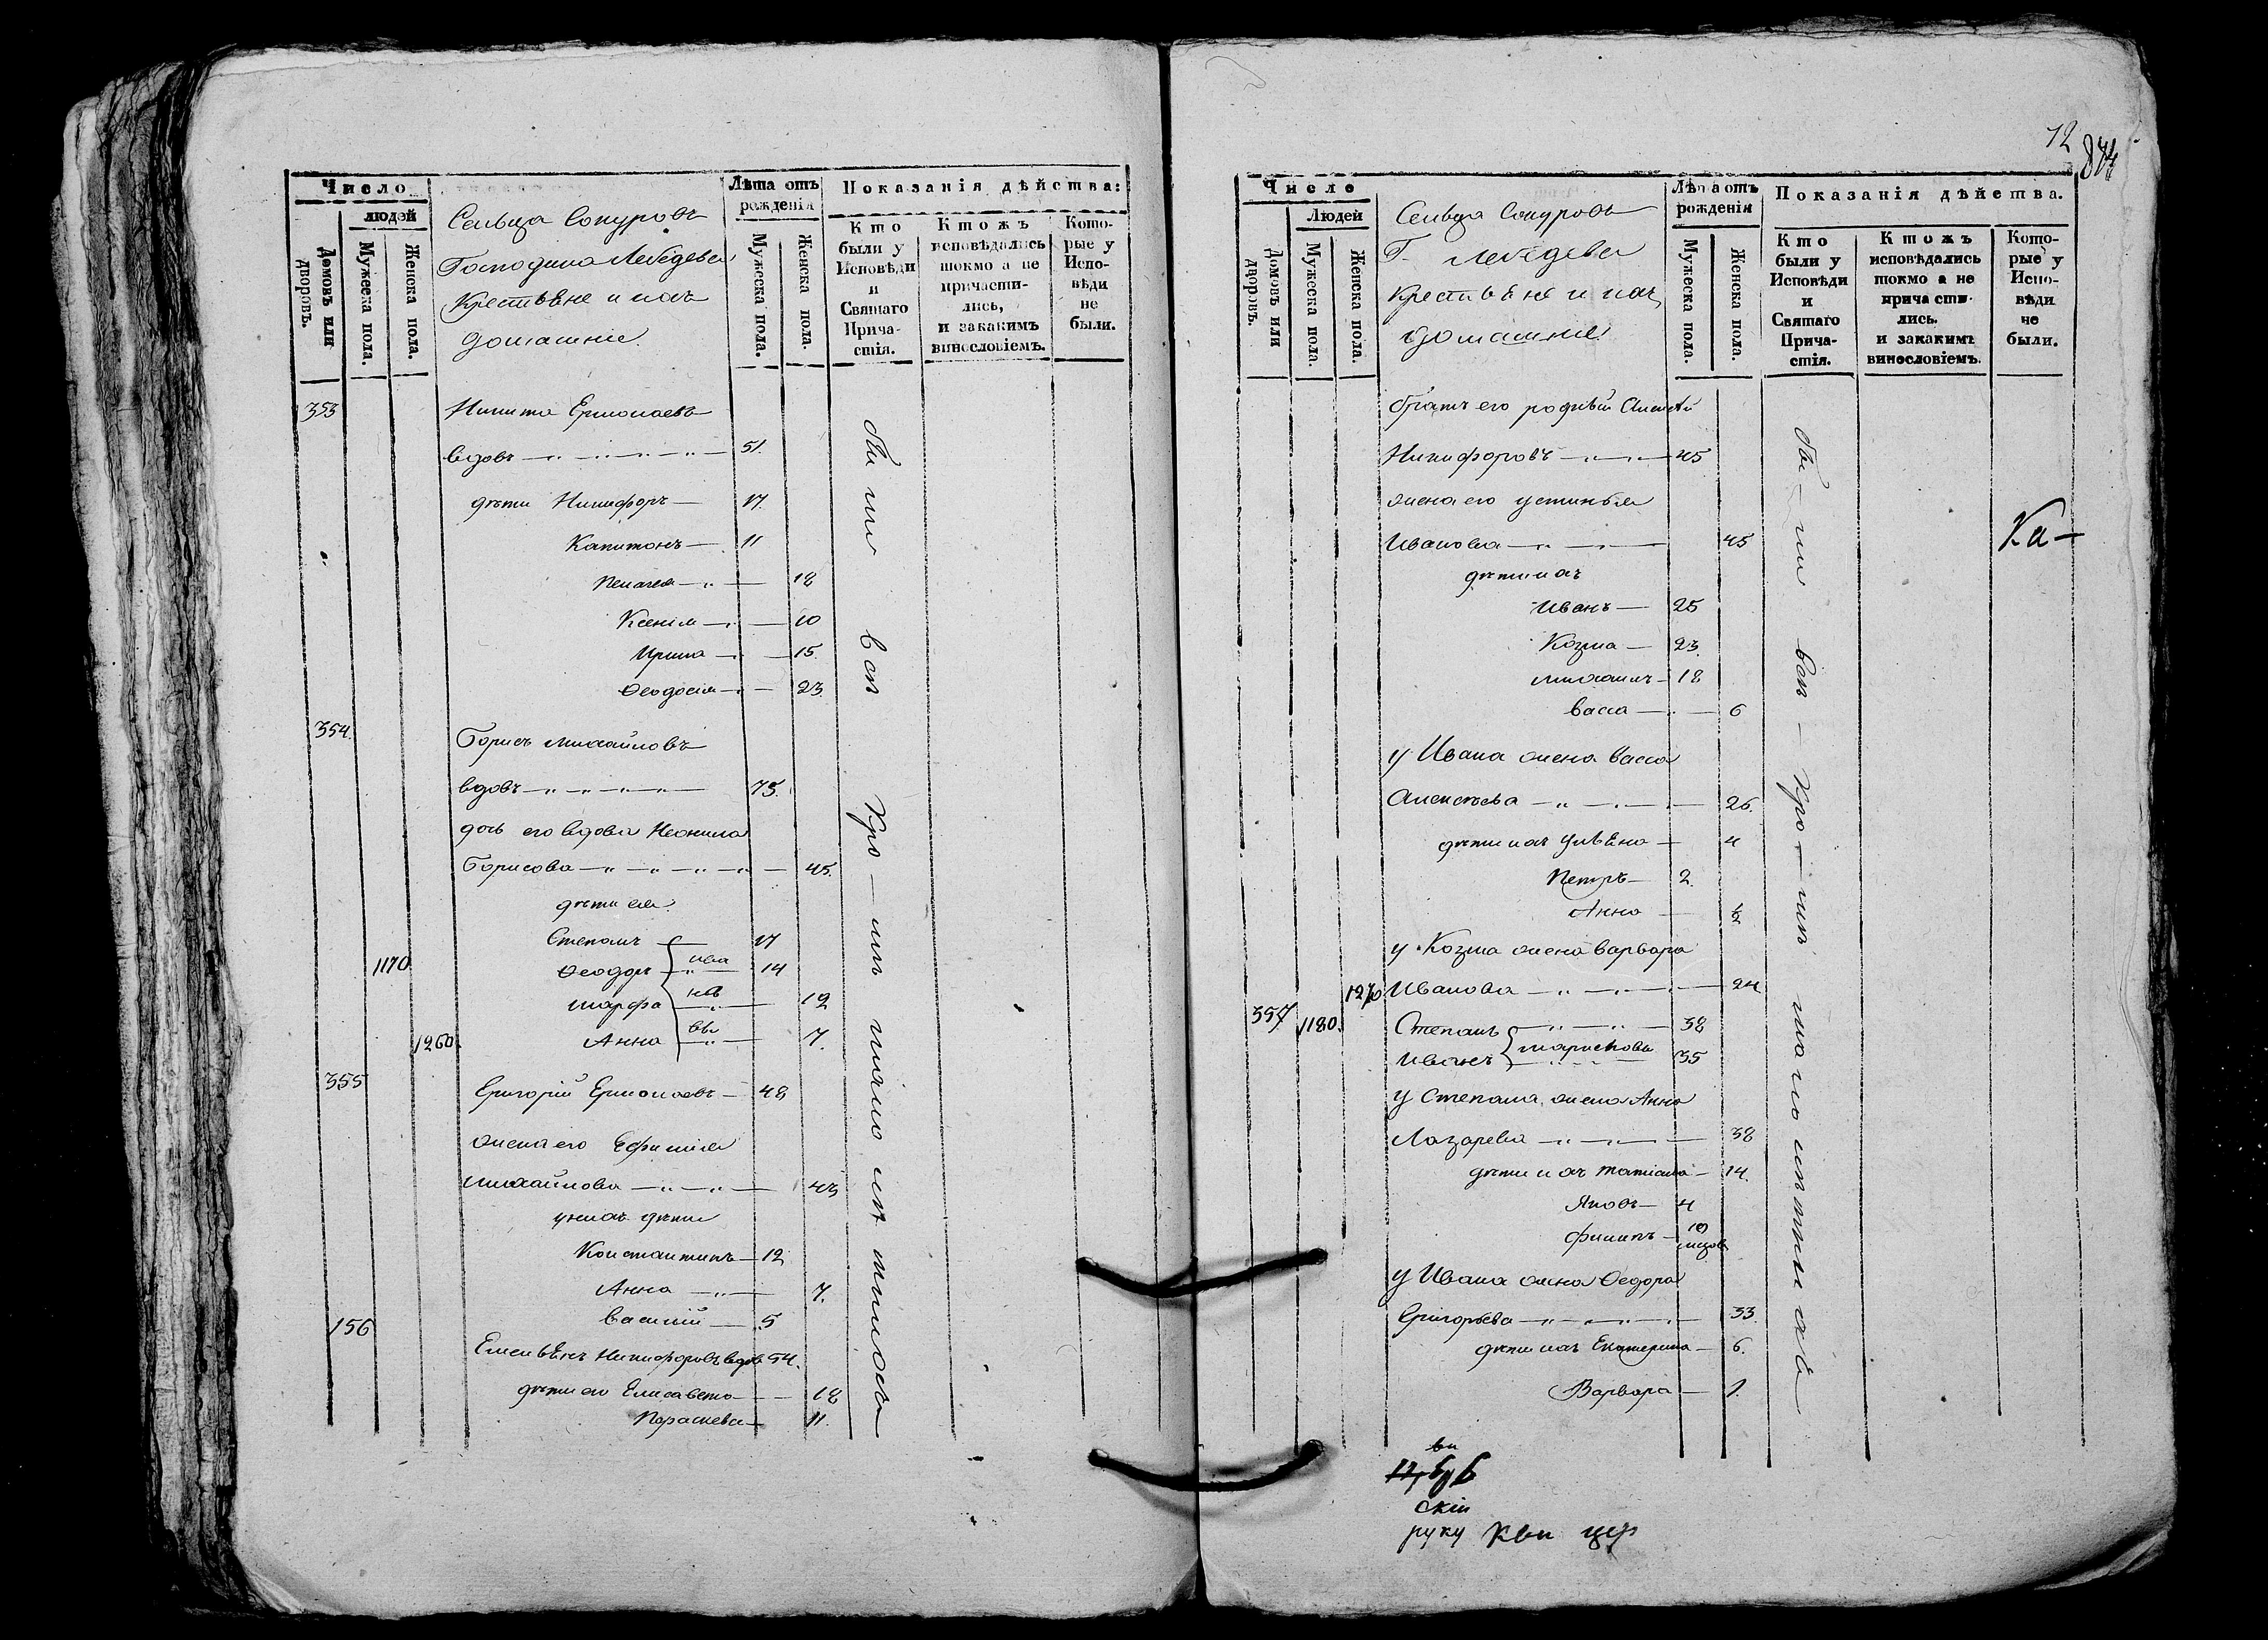 Число
людей
Домовъ или дворовъ.
Мужеска пола.
Женска пола.
Сельца Сокуровъ
Господина Лебедева
Крестьяне и ихъ
домашние.
Лѣта отъ
рожденія
Мужеска пола.
Женска пола.
Показанія дѣйства:
Кто
были у
Исповѣди
и
Святаго
Прича-
стія.
Ктожъ
исповѣдались
токмо а не
причасти-
лись,
и закакимъ
винословіемъ.
Кото-
рые у
Испо-
вѣди
не
были.
353 Никита Ермолаевъ
вдовъ 51.
дѣти Никифоръ 17.
Капитонъ 11
Пелагея 18
Ксенія 10
Ирина 15.
Ѳеодосія 23.
354. Борисъ Михайловъ
вдовъ 75.
дочь его вдова Неонила
Борисова 45.
дѣти ея
Степанъ 17
1170 Ѳеодоръ ива 14
Марфа но 12
1260. Анна вы 7.
355 Григорій Ермолаевъ 48
жена его Ефимія
Михайлова 43
у нихъ дѣти
Константинъ 12
Анна 7.
Василій 5
156
Емельянъ Никифоровъ вдов 54.
дѣти его Елисавета 18
Параскева 11.
бы ли всѣ
12
Число
Людей
Домовъ или дворовъ.
Мужеска пола
Женска пола.
Сельца Сокуровъ
Г. Лебедева
Крестьяне и ихъ
домашние
Лѣта отъ
рожденія
Мужеска пола.
Женска пола.
Показанія дѣйства.
Кто
были у
Исповѣди
и
Святаго
Прича-
стія.
Ктожъ
исповѣдались
токмо а не
причасти-
лись.
и закакимъ
винословіемъ.
Кото-
рые у
Испо-
вѣди
не
были.
братъ его родный Алексѣй
Никифоровъ 45
жена его Устинья
Иванова 45
дѣти ихъ
Иванъ 25
Козма 23.
Михаилъ 18
Васса 6
у Ивана жена Васса
Алексѣева 26.
дѣти ихъ Ульяна 4
Петръ 2.
Анна ½
у Козма жена Варвара
1270 Иванова 24
357 1180. Степанъ 38
Иванъ Марковы 35
У Степана жена Анна
Лазарева 38
дѣти ихъ Татіана 14.
Яковъ 4
Филипъ
У Ивана жена Ѳедора
Григорьева 33.
дѣти ихъ Екатерина 6.
Варвара 1.
бы - ли всѣ
Ка -
скіи
руку